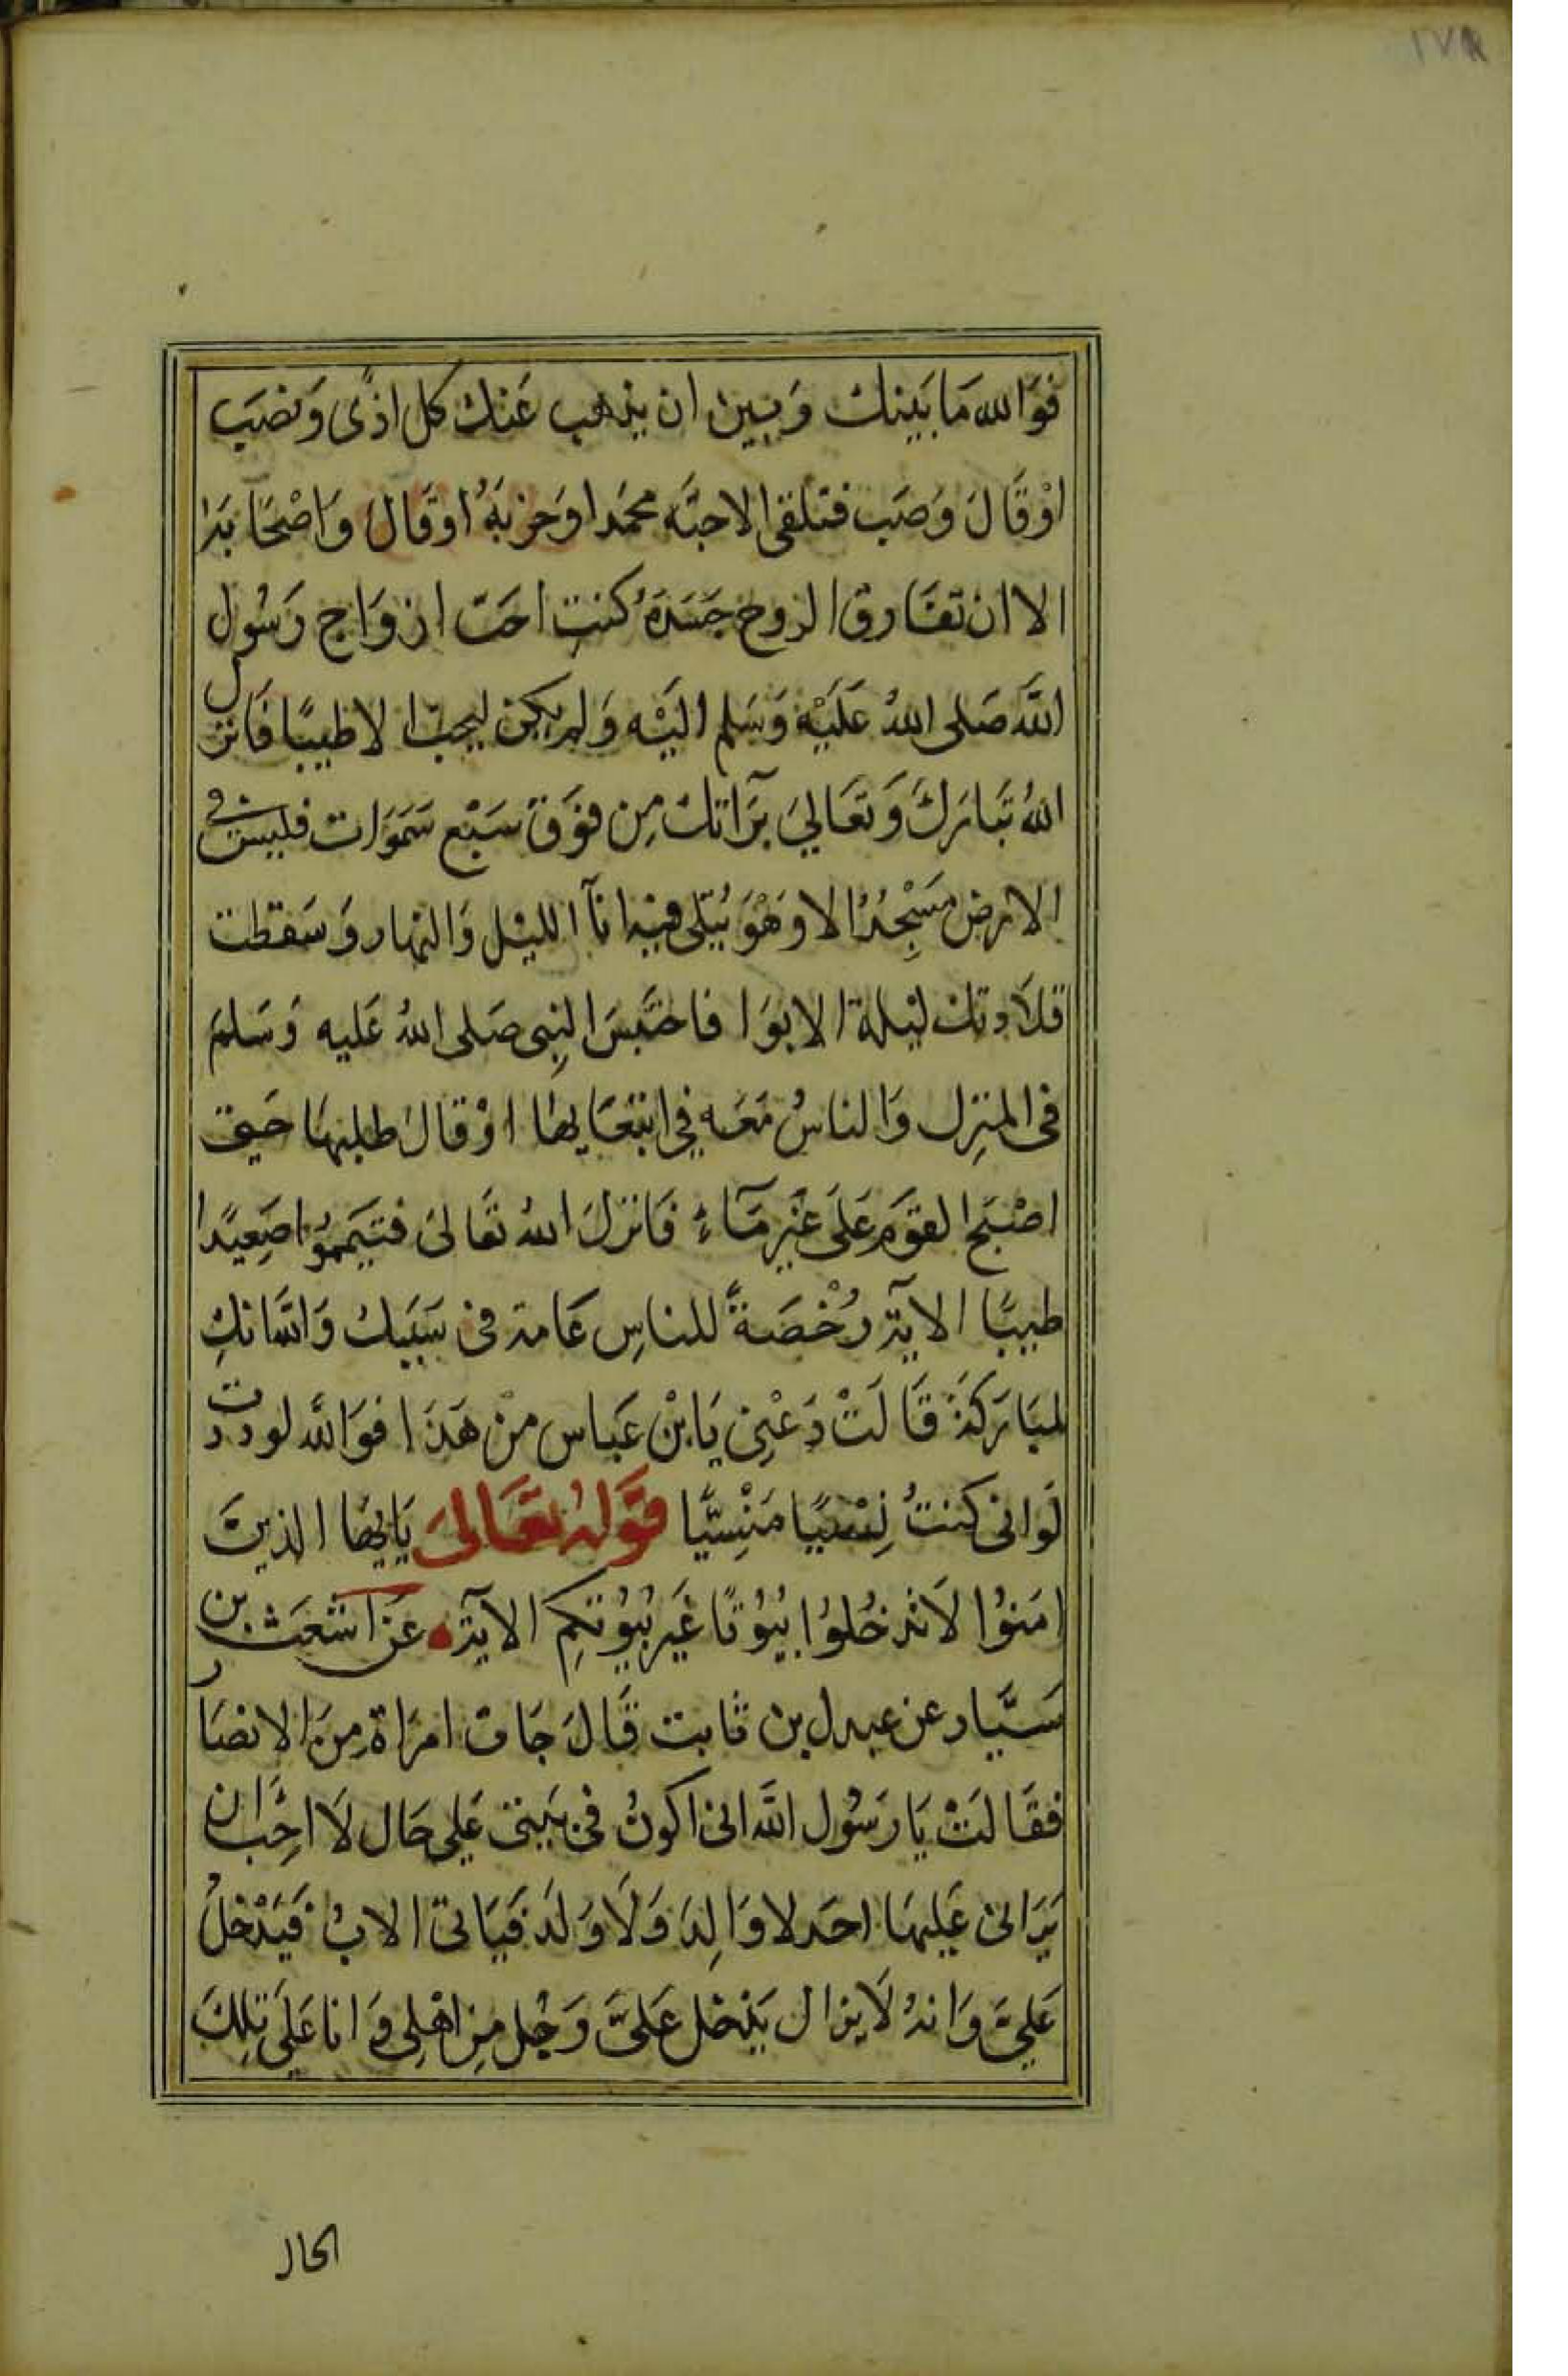 ١٧٨
فوَالله مَا بَينك وَبين ان يذهب عَنك كل اذًى وَنصَب
اوْ قَالَ وَصَب فتلقى الاحبَّه محمَدا وَحزبَهُ اوقَال وَاصْحَابَه
الا ان تفَارق الروح جَسَدَهُ كنتِ احَبّ ازوَاج رَسُول
اللَّه صَلى اللهُ عَلَيْه وَسَلم اليْه وَلم يكن ليحبّ الا طيبًا فَانزل
اللهُ تبَارَكَ وَتعَاليَ برَآتك مِن فوَقَ سَبْع سَمَوَات فليسَ في
الارض مَسْجِدُ الا وَهْوَ يُتلى فيه انآ الليْل وَالنهَار وَسَقطت
قلَادتك ليْلة الابوَا فاحتَبسَ النبِى صَلى اللهُ عَليه وَسَلمَ
فى المنزِل وَالناسُ مَعَه في ابتغَايهَا اوْ قالَ طلبهَا حَتى
اصْبَح القوَم عَلَى غَيْر مَآءٍ فَانزلَ اللهُ تعَالىَ فتيَممُوا صَعِيدًا
طيبًا الآية رُخْصَةً للناسِ عَامة فى سَبَبك وَاللَّه انكِ
لمبَارَكة قَالَتْ دَعْنِى يَا بْن عَباس منْ هَذَا فوَاللَّه لوددت
لَوانى كنتُ نِسْيًا مَنْسِيًّا قَوْلهُ تعَالىَ يَايهَا الذينَ
امَنوُا لَا تدخُلوُا بُيُوتًا غَيرَ بُيُوتكِم الآية عَن اشعَث بن
سَيَّار عن عدى بن ثابت قَالَ جَات امرَاة مِنَ الانصَار
فقَالَتْ يَا رَسُول اللَّه انى اكونُ فى بَيتى عَلى حَال لَا احِبُّ ان
يَرَانى عَليهَا احَد لا وَالِد وَلَا وَلَد فيَاتى الابُ فَيَدْخلُ
عَليَّ وَانهُ لَا يزال يَدْخل عَلىَّ رَجُل مِن اهْلِى وَانا عَلَى تِلكَ
الحال